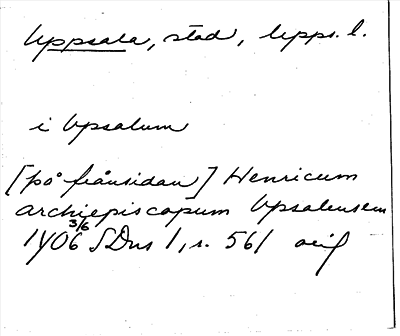 Uppsala, stad, Upps. l.
i Upsalum
[på frånsidan] Henricum
archiepiscopum Upsalensem
1406 3/6 SDns 1, s. 561 orig